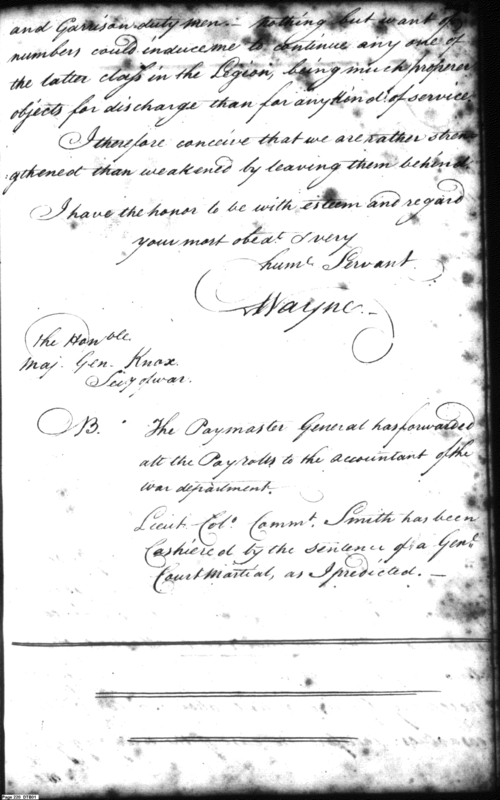 and Garrison duty men.— nothing but want of
numbers could induce me to continue any one of
the latter class in the Legion, being much properer
objects for discharge than for any kind of service
I therefore conceive that we are rather stren-
gthened than weakened by leaving them behind.
I have the honor to be with esteem and regard
your most obedt & very
huml Servant.
Wayne—
The Honble
Maj. Gen. Knox
Secy of war.
NB. The Paymaster General has forwarded
all the Payrolls to the accountant of the
war department.
Lieut. Colo Commt. Smith has been
Cashiered by the sentence of a Genl
Court Martial, as I predicted.—